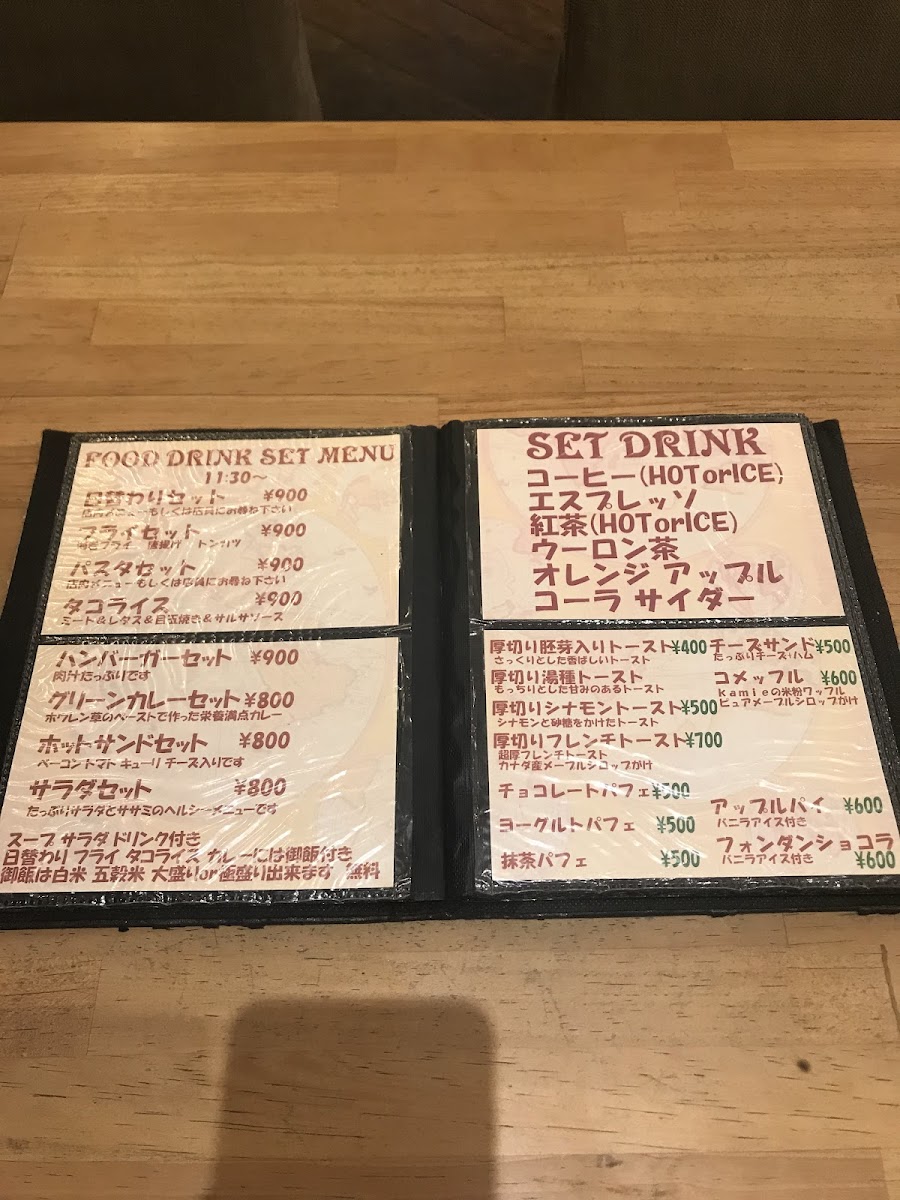 FOOD DRINK SET MENU
11:30～
日替わりセット ¥900
店内メニューもしくは店員にお尋ね下さい
フライセット ¥900
唐揚げ トンカツ
パスタセット ¥900
店内メニューもしくは店員にお尋ね下さい
タコライス ¥900
ミート&レタス&目玉焼き&サルサソース
ハンバーガーセット ¥900
肉汁たっぷりです
グリーンカレーセット ¥800
ホウレン草のペーストで作った栄養満点カレー
ホットサンドセット ¥800
ベーコン トマト キューリ チーズ入りです
サラダセット ¥800
たっぷりサラダとササミのヘルシーメニューです
スープ サラダ ドリンク付き
日替わり フライ タコライス カレーには御飯付き
御飯は白米 五穀米 大盛りor極盛り出来ます 無料
SET DRINK
コーヒー(HOTorICE)
エスプレッソ
紅茶(HOTorICE)
ウーロン茶
オレンジ アップル
コーラ サイダー
厚切り胚芽入りトースト ¥400
さっくりとした香ばしいトースト
厚切り湯種トースト
もっちりとした甘みのあるトースト
厚切りシナモントースト ¥500
シナモンと砂糖をかけたトースト
厚切りフレンチトースト ¥700
超厚フレンチトースト
カナダ産メープルシロップがけ
チョコレートパフェ ¥500
ヨーグルトパフェ ¥500
抹茶パフェ ¥500
チーズサンド ¥500
たっぷりチーズ+ハム
コメッフル ¥600
kamieの米粉ワッフル
ピュアメープルシロップがけ
アップルパイ ¥600
バニラアイス付き
フォンダンショコラ
バニラアイス付き ¥600